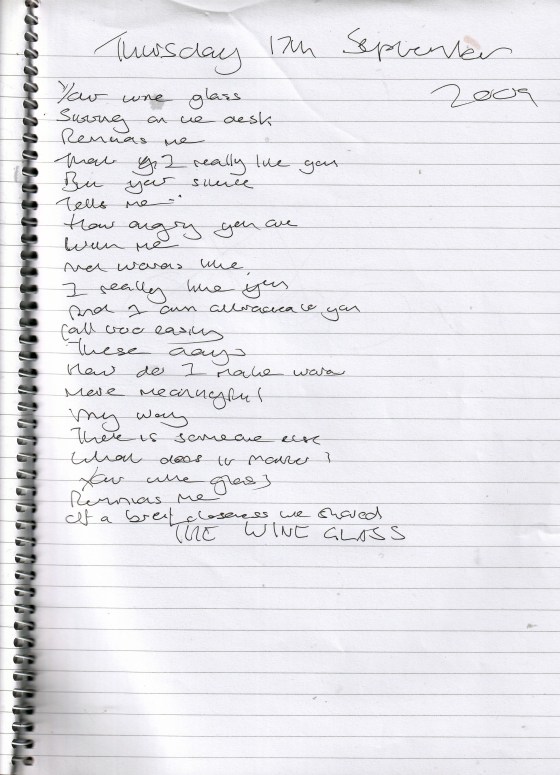 Thursday 17th September
2009
Your wine glass
Sitting on the desk
Reminds me
That I really like you
But your silence
Tells me
How angry you are
With me
And words like
I really like you
And I am attracted to you
Fall too easily
These days
How do I make words
More meaningful
My way
There is someone else
What does it matter?
Your wine glass
Reminds me
Of a brief closeness we shared
THE WINE GLASS